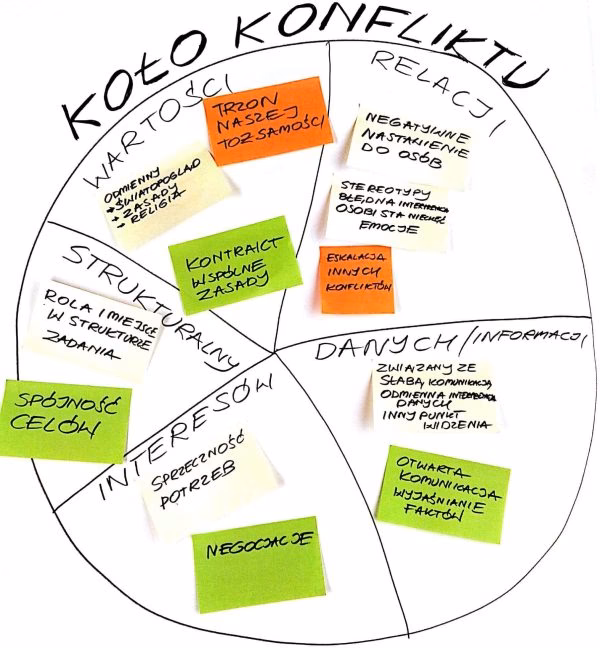 KOŁO KONFLIKTU
WARTOŚCI
TRZON
NASZEJ
TOŻSAMOŚCI
ODMIENNY
→ ŚWIATOPOGLĄD
→ ZASADY
→ RELIGIA
KONTRAKT
WSPÓLNE
ZASADY
RELACJI
NEGATYWNE
NASTAWIENIE
DO OSÓB
STEREOTYPY
BŁĘDNA
OSOBISTA NIECHĘĆ
EMOCJE
ESKALACJA
INNYCH
KONFLIKTÓW
STRUKTURALNY
ROLA I MIEJSCE
W STRUKTURZE
ZADANIA
SPÓJNOŚĆ
CELÓW
INTERESÓW
SPRZECZNOŚĆ
POTRZEB
NEGOCJACJE
DANYCH/INFORMACJI
ZWIĄZANY ZE
SŁABĄ KOMUNIKACJĄ
ODMIENNA
DANYCH
INNY PUNKT
WIDZENIA
OTWARTA
KOMUNIKACJA
WYJAŚNIANIE
FAKTÓW